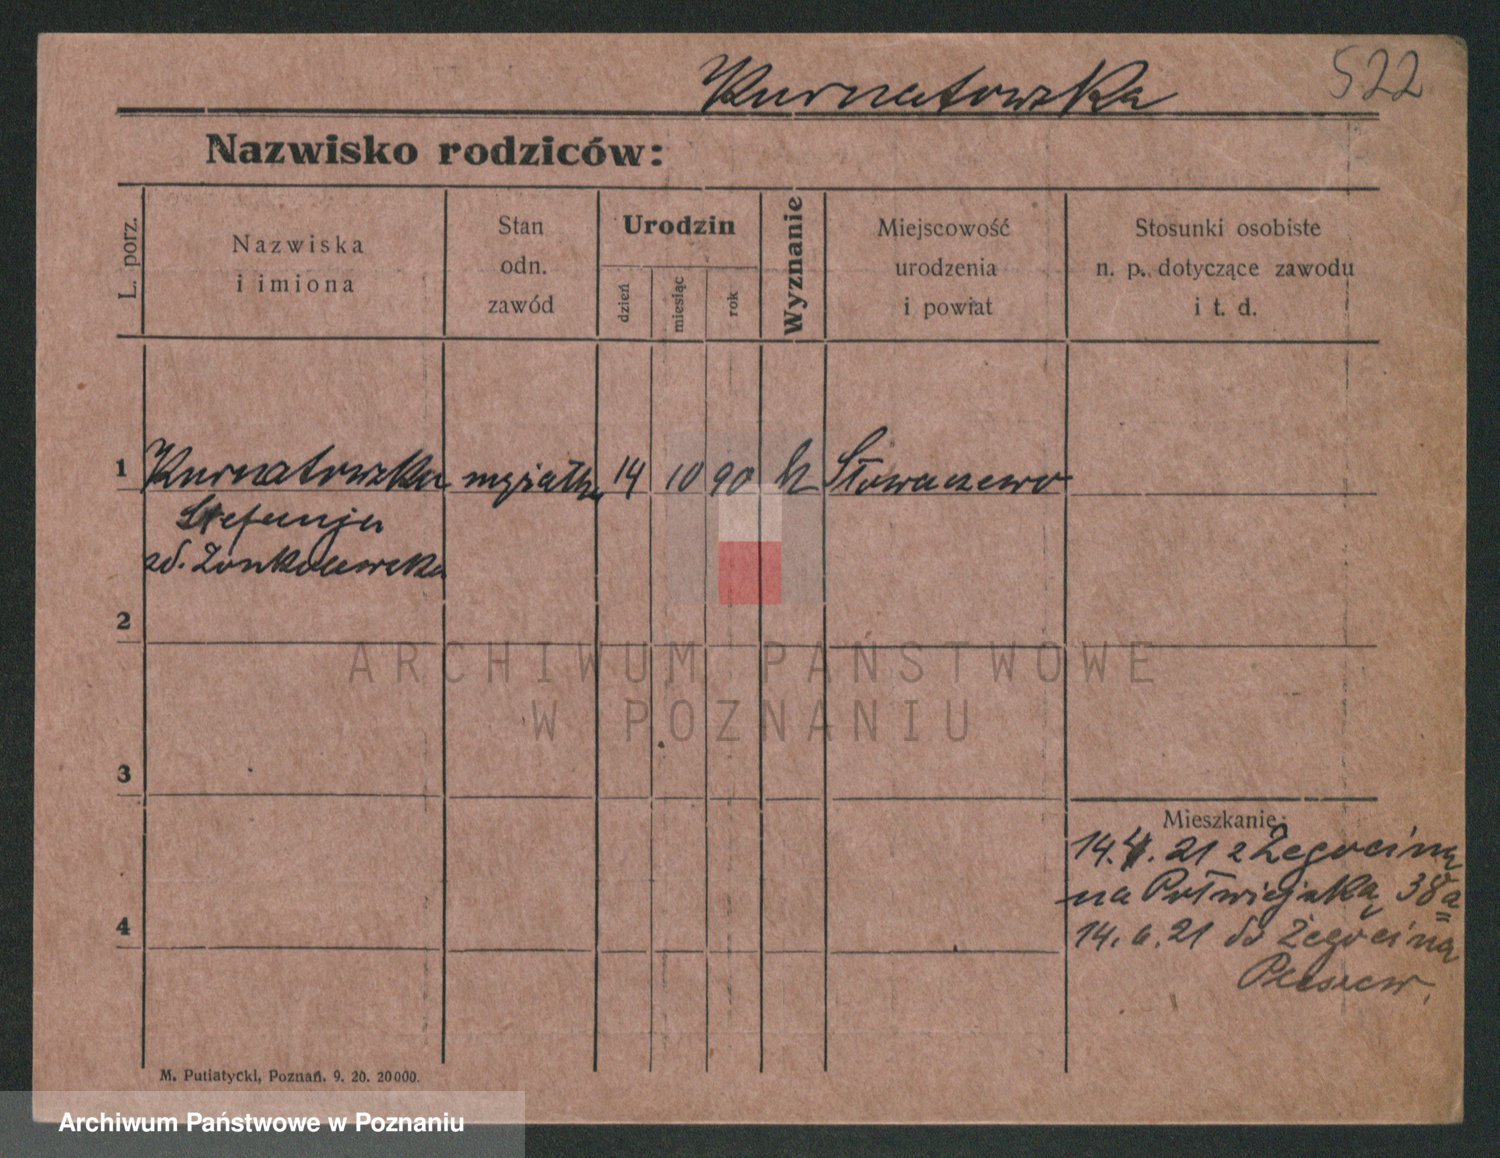 Kurnatowska
522
Nazwisko rodziców:
L. porz.
Nazwiska
i imiona
Stan
odn.
zawód
Urodzin
dzień
miesiąc
rok
Wyznanie
Miejscowość
urodzenia
i powiat
Stosunki osobiste
n. p. dotyczące zawodu
i t. d.
1 Kurnatowska 14 10 90 k
Stefanja
2
3
4
Mieszkanie:
14.4.21 z Żegocina
na Półwiejską 38a
14.6.21 do Żegocina
Pleszew.
M. Putiatycki, Poznań. 9. 20. 20000.
ARCHIWUM PAŃSTWOWE
W POZNANIU
Archiwum Państwowe w Poznaniu